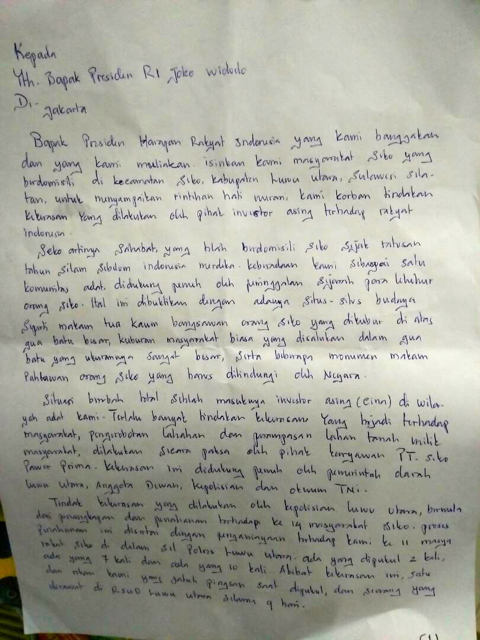 Kepada
Yth. Bapak Presiden RI Joko Widodo
Di -
Jakarta
Bapak Presiden Harapan Rakyat Indonesia yang kami banggakan
dan yang kami muliakan. isinkan kami masyarakat Seko yang
berdomisili di kecamatan Seko, kabupaten Luwu utara, Sulawesi Sela-
tan, untuk menyampaikan rintihan hati nurani, kami korban tindakan
kekerasan yang dilakukan oleh pihak investor asing terhadap rakyat
indonesia.
Seko artinya Sahabat, yang telah berdomisili Seko Sejak ratusan
tahun silam sebelum indonesia merdeka. keberadaan kami sebagai satu
komunitas adat. didukung penuh oleh peninggalan sejarah para leluhur
orang Seko. Hal ini dibuktikan dengan adanya situs-situs budaya
seperti makam tua kaum bangsawan orang Seko yang dikubur di atas
gua batu besar, kuburan masyarakat biasa yang disatukan dalam gua
batu yang ukurannya sangat besar, serta beberapa monumen makam
Pahlawan orang Seko yang harus dilindungi oleh Negara.
Situasi berubah total setelah masuknya investor asing (cina) di wila-
yah adat kami. Terlalu banyak tindakan kekerasan yang terjadi terhadap
masyarakat, penyerobotan lahan dan perampasan lahan tanah milik
masyarakat, dilakukan secara paksa oleh pihak karyawan PT. Seko
Power Prima. kekerasan ini didukung penuh oleh pemerintah daerah
Luwu utara, Anggota Dewan, kepolisian dan oknum TNI.
Tindak kekerasan yang dilakukan oleh kepolisian Luwu utara, bermula
dari penangkapan dan penahanan terhadap ke 14 masyarakat Seko. proses
penahanan ini disertai dengan penganiayaan terhadap kami ke 11 masya
rakat Seko di dalam sel Polres Luwu utara. ada yang dipukul 2 kali,
ada yang 7 kali dan ada yang 10 kali. Akibat kekerasan ini, satu
dari kami yang jatuh pingsan saat dipukul, dan seorang yang
dirawat di RSUD Luwu utara selama 9 hari.